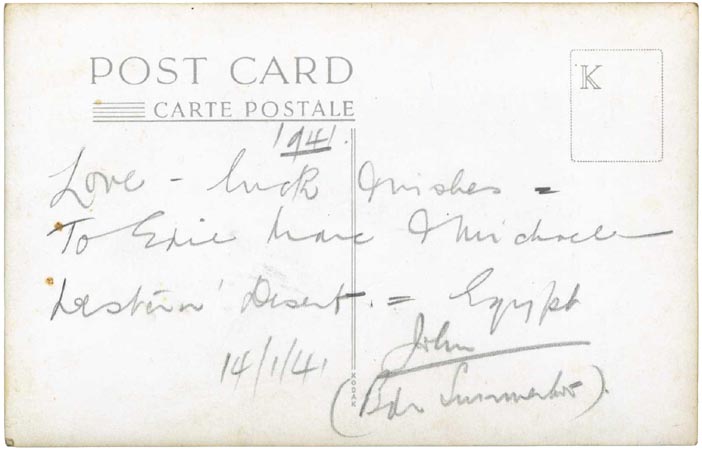 POST CARD
CARTE POSTALE
K
1941.
Love - luck & wishes =
To Edie & Michael
Western Desert. = Egypt
14/1/41
John
(Bdr
KODAK